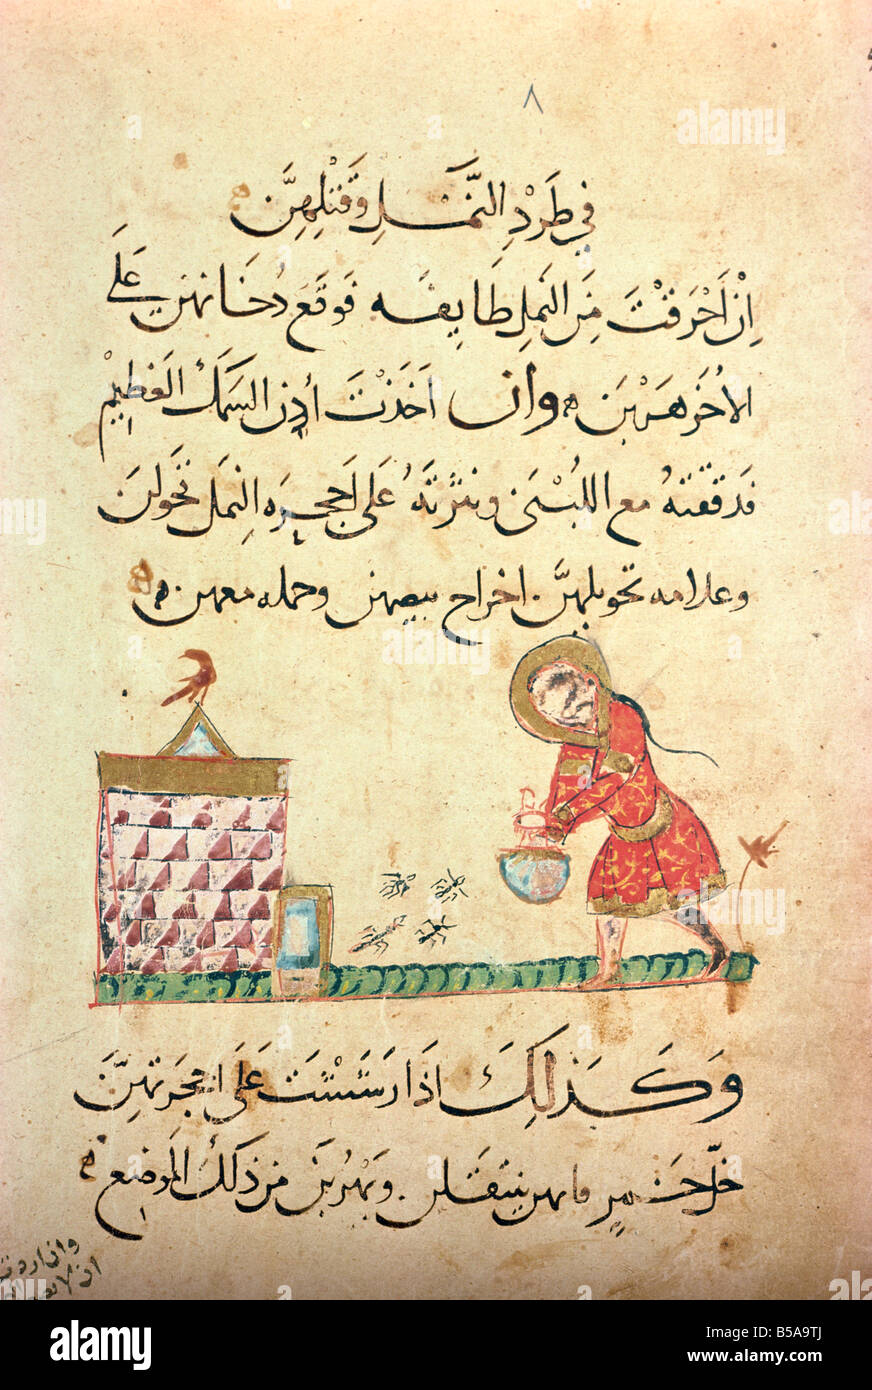 ٨
في طَرْدِ النَّمْلِ وَقَتْلِهِنَّ
اِنْ اَحْرَقْتَ مِنَ النَملِ طَايِفَه فوَقَع دُخَانهن عَلَى
الأُخَر هَرَبْنَ وان اَخَذْتَ أُذن السَمَك العَظِيْم
فدققتهُ مع اللُبْنَى ونثرتَهُ عَلَى اَحجِرَه النمل تحَولنَ
وعلامه تحويلهنَّ اخراج بيضهن وحمله معهن
وَكَذلِكَ اذَا رَشَشْتَ عَلَى احجرَتهِنَّ
خلّ خَمرٍ فانهن ينتقلن وَيَهْرُبنَ من ذلك المَوضِع
وان اردت
ان لا
alamy
Image ID: B5A9TJ
www.alamy.com